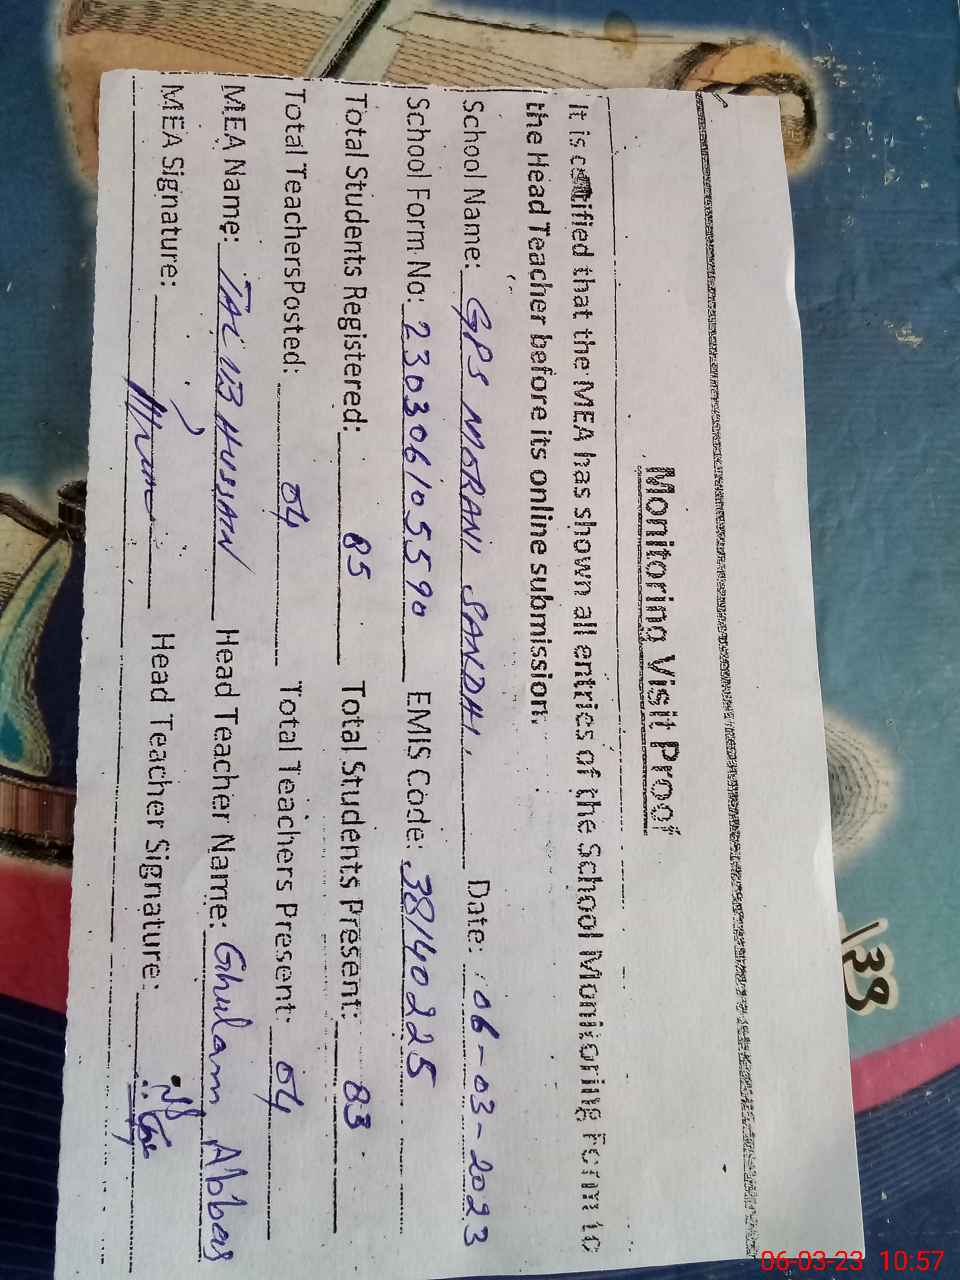 Monitoring Visit Proof
It is certified that the MEA has shown all entries of the School Monitoring Form to
the Head Teacher before its online submission.
School Name: GPS MORANI SANDHI. Date: 06-03-2023
School Form No: 23030610 5590 EMIS Code: 38140225
Total Students Registered: 85 Total Students Present: 83
Total TeachersPosted: 04 Total Teachers Present: 04
MEA Name: TALIB HUSSAN Head Teacher Name: Ghulam Abbas
MEA Signature: Head Teacher Signature:
139
06-03-23 10:57